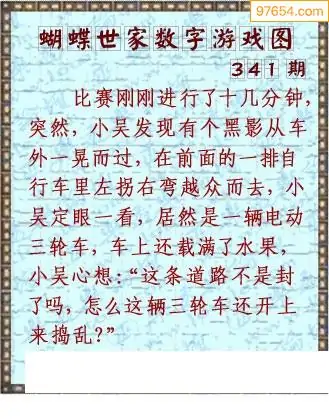 97654.com
蝴蝶世家数字游戏图
341期
比赛刚刚进行了十几分钟，
突然，小吴发现有个黑影从车
外一晃而过，在前面的一排自
行车里左拐右弯越众而去，小
吴定眼一看，居然是一辆电动
三轮车，车上还载满了水果，
小吴心想：“这条道路不是封
了吗，怎么这辆三轮车还开上
来捣乱？”